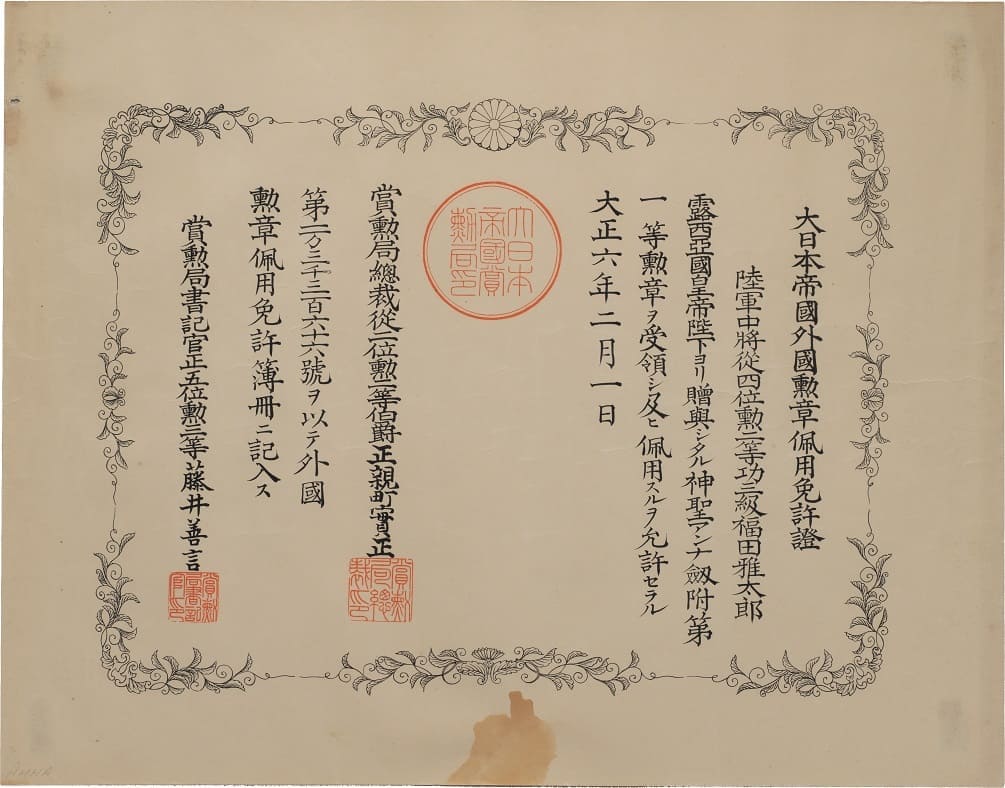 大日本帝國外國勲章佩用免許證
陸軍中將從四位勲二等功三級福田雅太郎
露西亞國皇帝陛下ヨリ贈與シタル神聖アンナ劔附第
一等勲章ヲ受領シ及ヒ佩用スルヲ允許セラル
大正六年二月一日
大日本帝國賞勲局印
賞勲局總裁從二位勲一等伯爵正親町實正
賞勲局總裁印
第二万三千三百六十六號ヲ以テ外國
勲章佩用免許簿冊ニ記入ス
賞勲局書記官正五位勲三等藤井善言
賞勲局書記官印